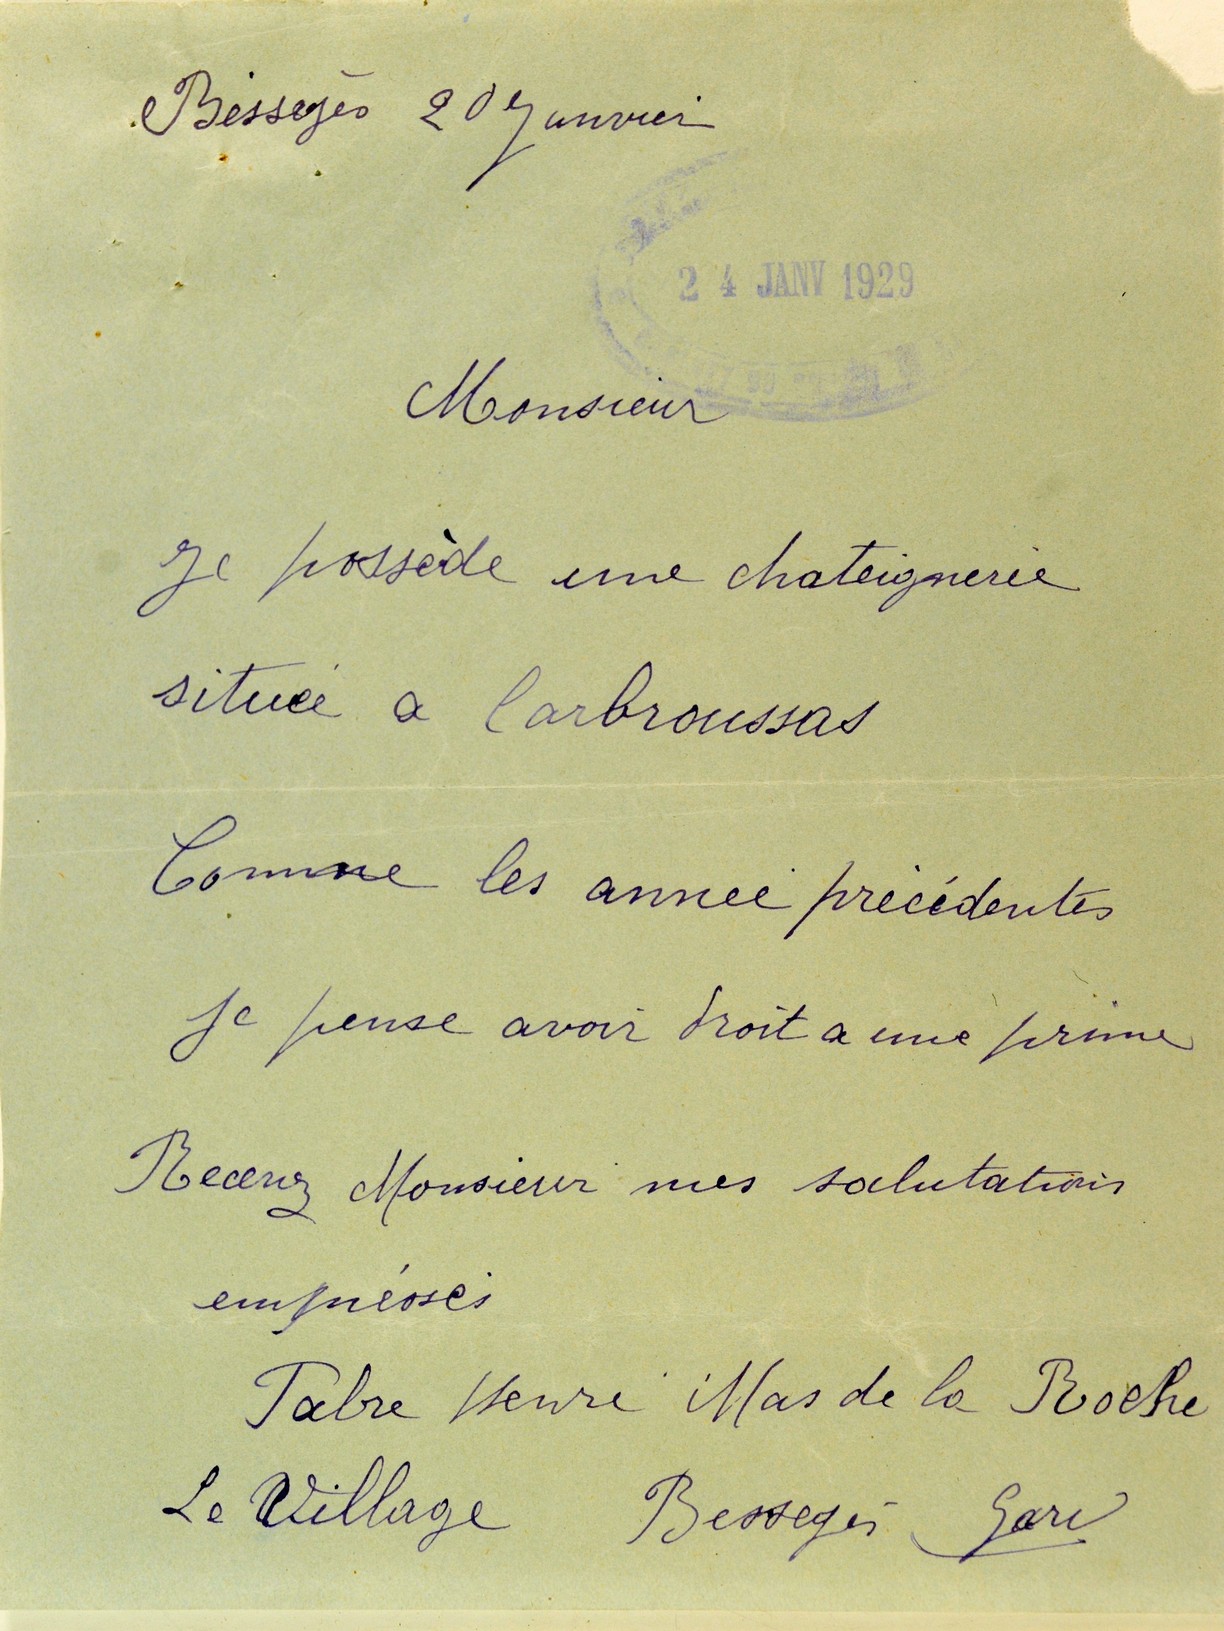 Bessegès 20 Janvier
24 JANV 1929
Monsieur
Je possède une chateignerie
située a Carbroussas
Comme les année précédentes
je pense avoir droit a une prime
Recevez Monsieur mes salutations
empréssés
Fabre Henri Mas de la Roche
Le Village Bessegès Gard